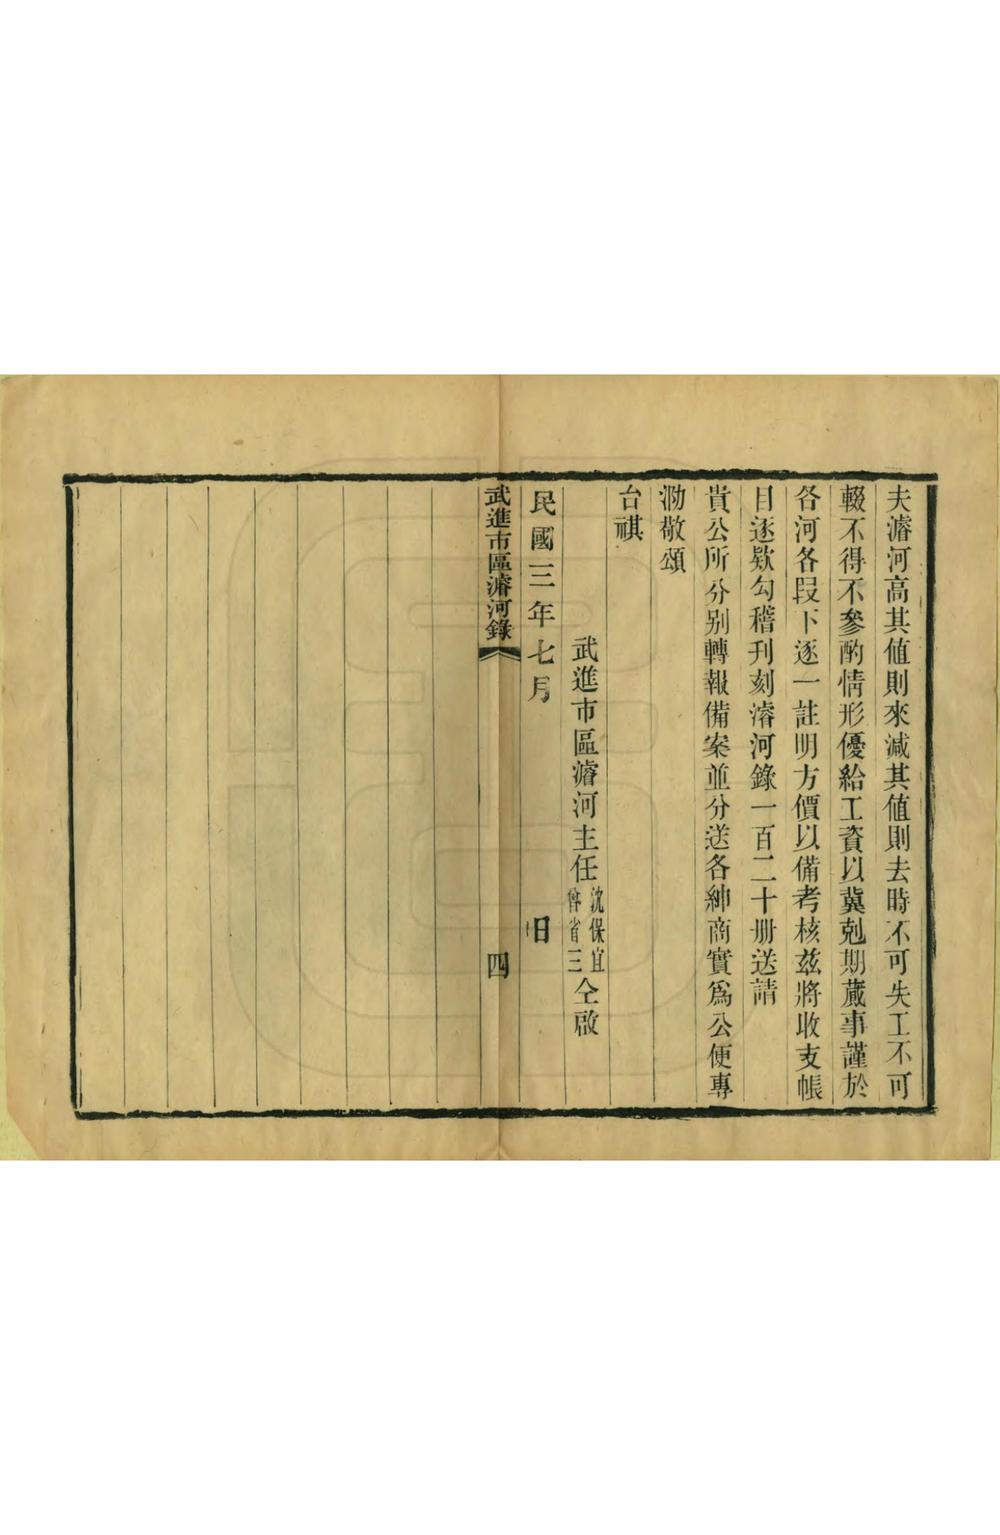 夫濬河高其値則來減其値則去時不可失工不可
輟不得不參酌情形優給工資以冀剋期蕆事謹於
各河各段下逐一註明方價以備考核茲將收支帳
目逐欵勾稽刊刻濬河錄一百二十册送請
貴公所分别轉報備案並分送各紳商實爲公便專
泐敬頌
台祺
武進市區濬河主任沈保宜 省三仝啟
民國三年七月 日
武進市區濬河錄 四